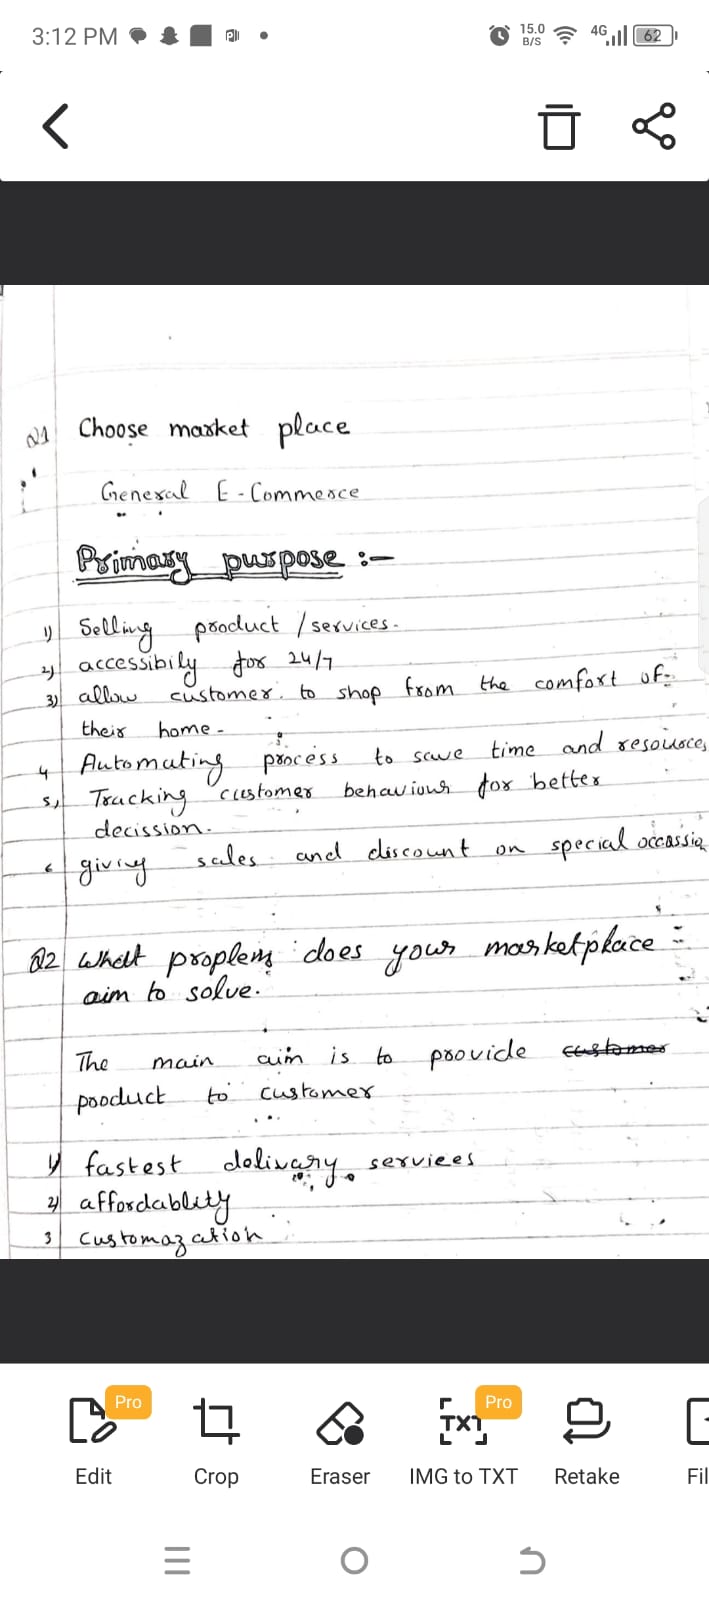 3:12 PM
15.0 B/S
4G
62
Q1 Choose market place
General E-Commerce
Primary purpose :-
1) Selling product / services.
2) accessibily for 24/7
3) allow customer. to shop from the comfort of
their home -
4 Automating process to save time and resources
5, Tracking customer behaviour for better
decission.
6 giving sales and discount on special occassio
Q2 What proplem does your marketplace
aim to solve.
The main aim is to provide customer
pooduct to customer
1) fastest delivary services
2) affordablity
3 Customazation
Pro
Pro
TXT
Edit
Crop
Eraser
IMG to TXT
Retake
Fil